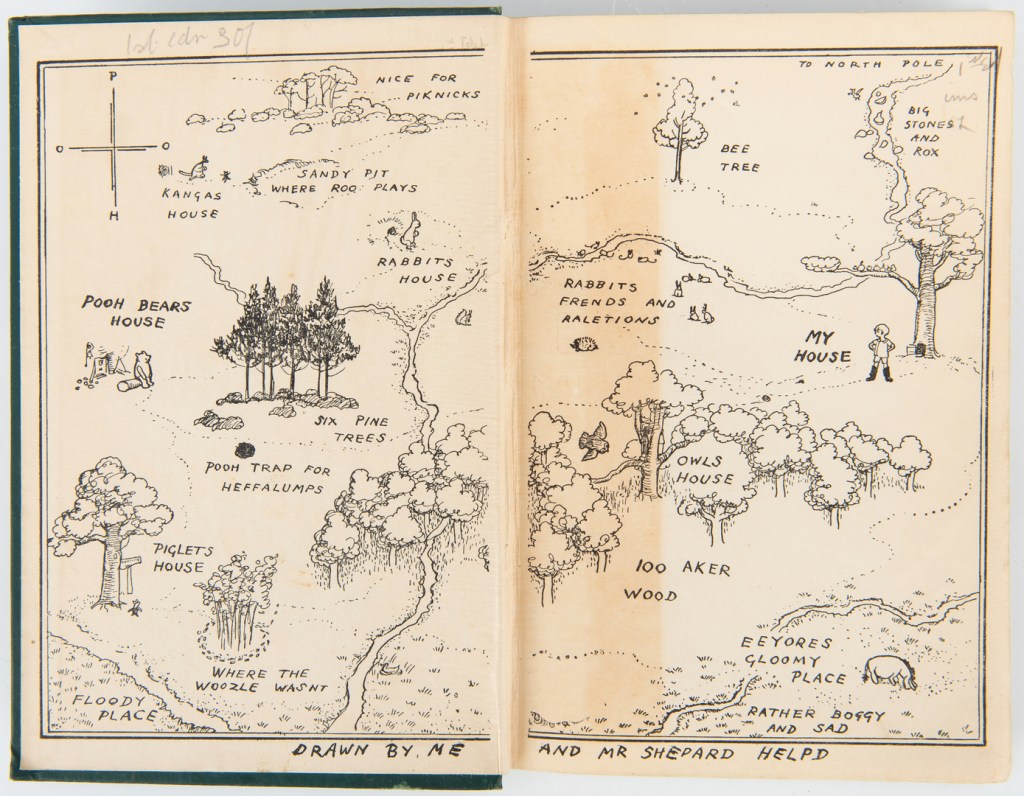 1st edn 30/
P
O
O
H
NICE FOR
PIKNICKS
KANGAS
HOUSE
SANDY PIT
WHERE ROO PLAYS
RABBITS
HOUSE
POOH BEARS
HOUSE
SIX PINE
TREES
POOH TRAP FOR
HEFFALUMPS
PIGLETS
HOUSE
WHERE THE
WOOZLE WASNT
FLOODY
PLACE
TO NORTH POLE
BIG
STONES
AND
ROX
BEE
TREE
RABBITS
FRENDS AND
RALETIONS
MY
HOUSE
OWLS
HOUSE
100 AKER
WOOD
EEYORES
GLOOMY
PLACE
RATHER BOGGY
AND SAD
DRAWN BY ME
AND MR SHEPARD HELPD